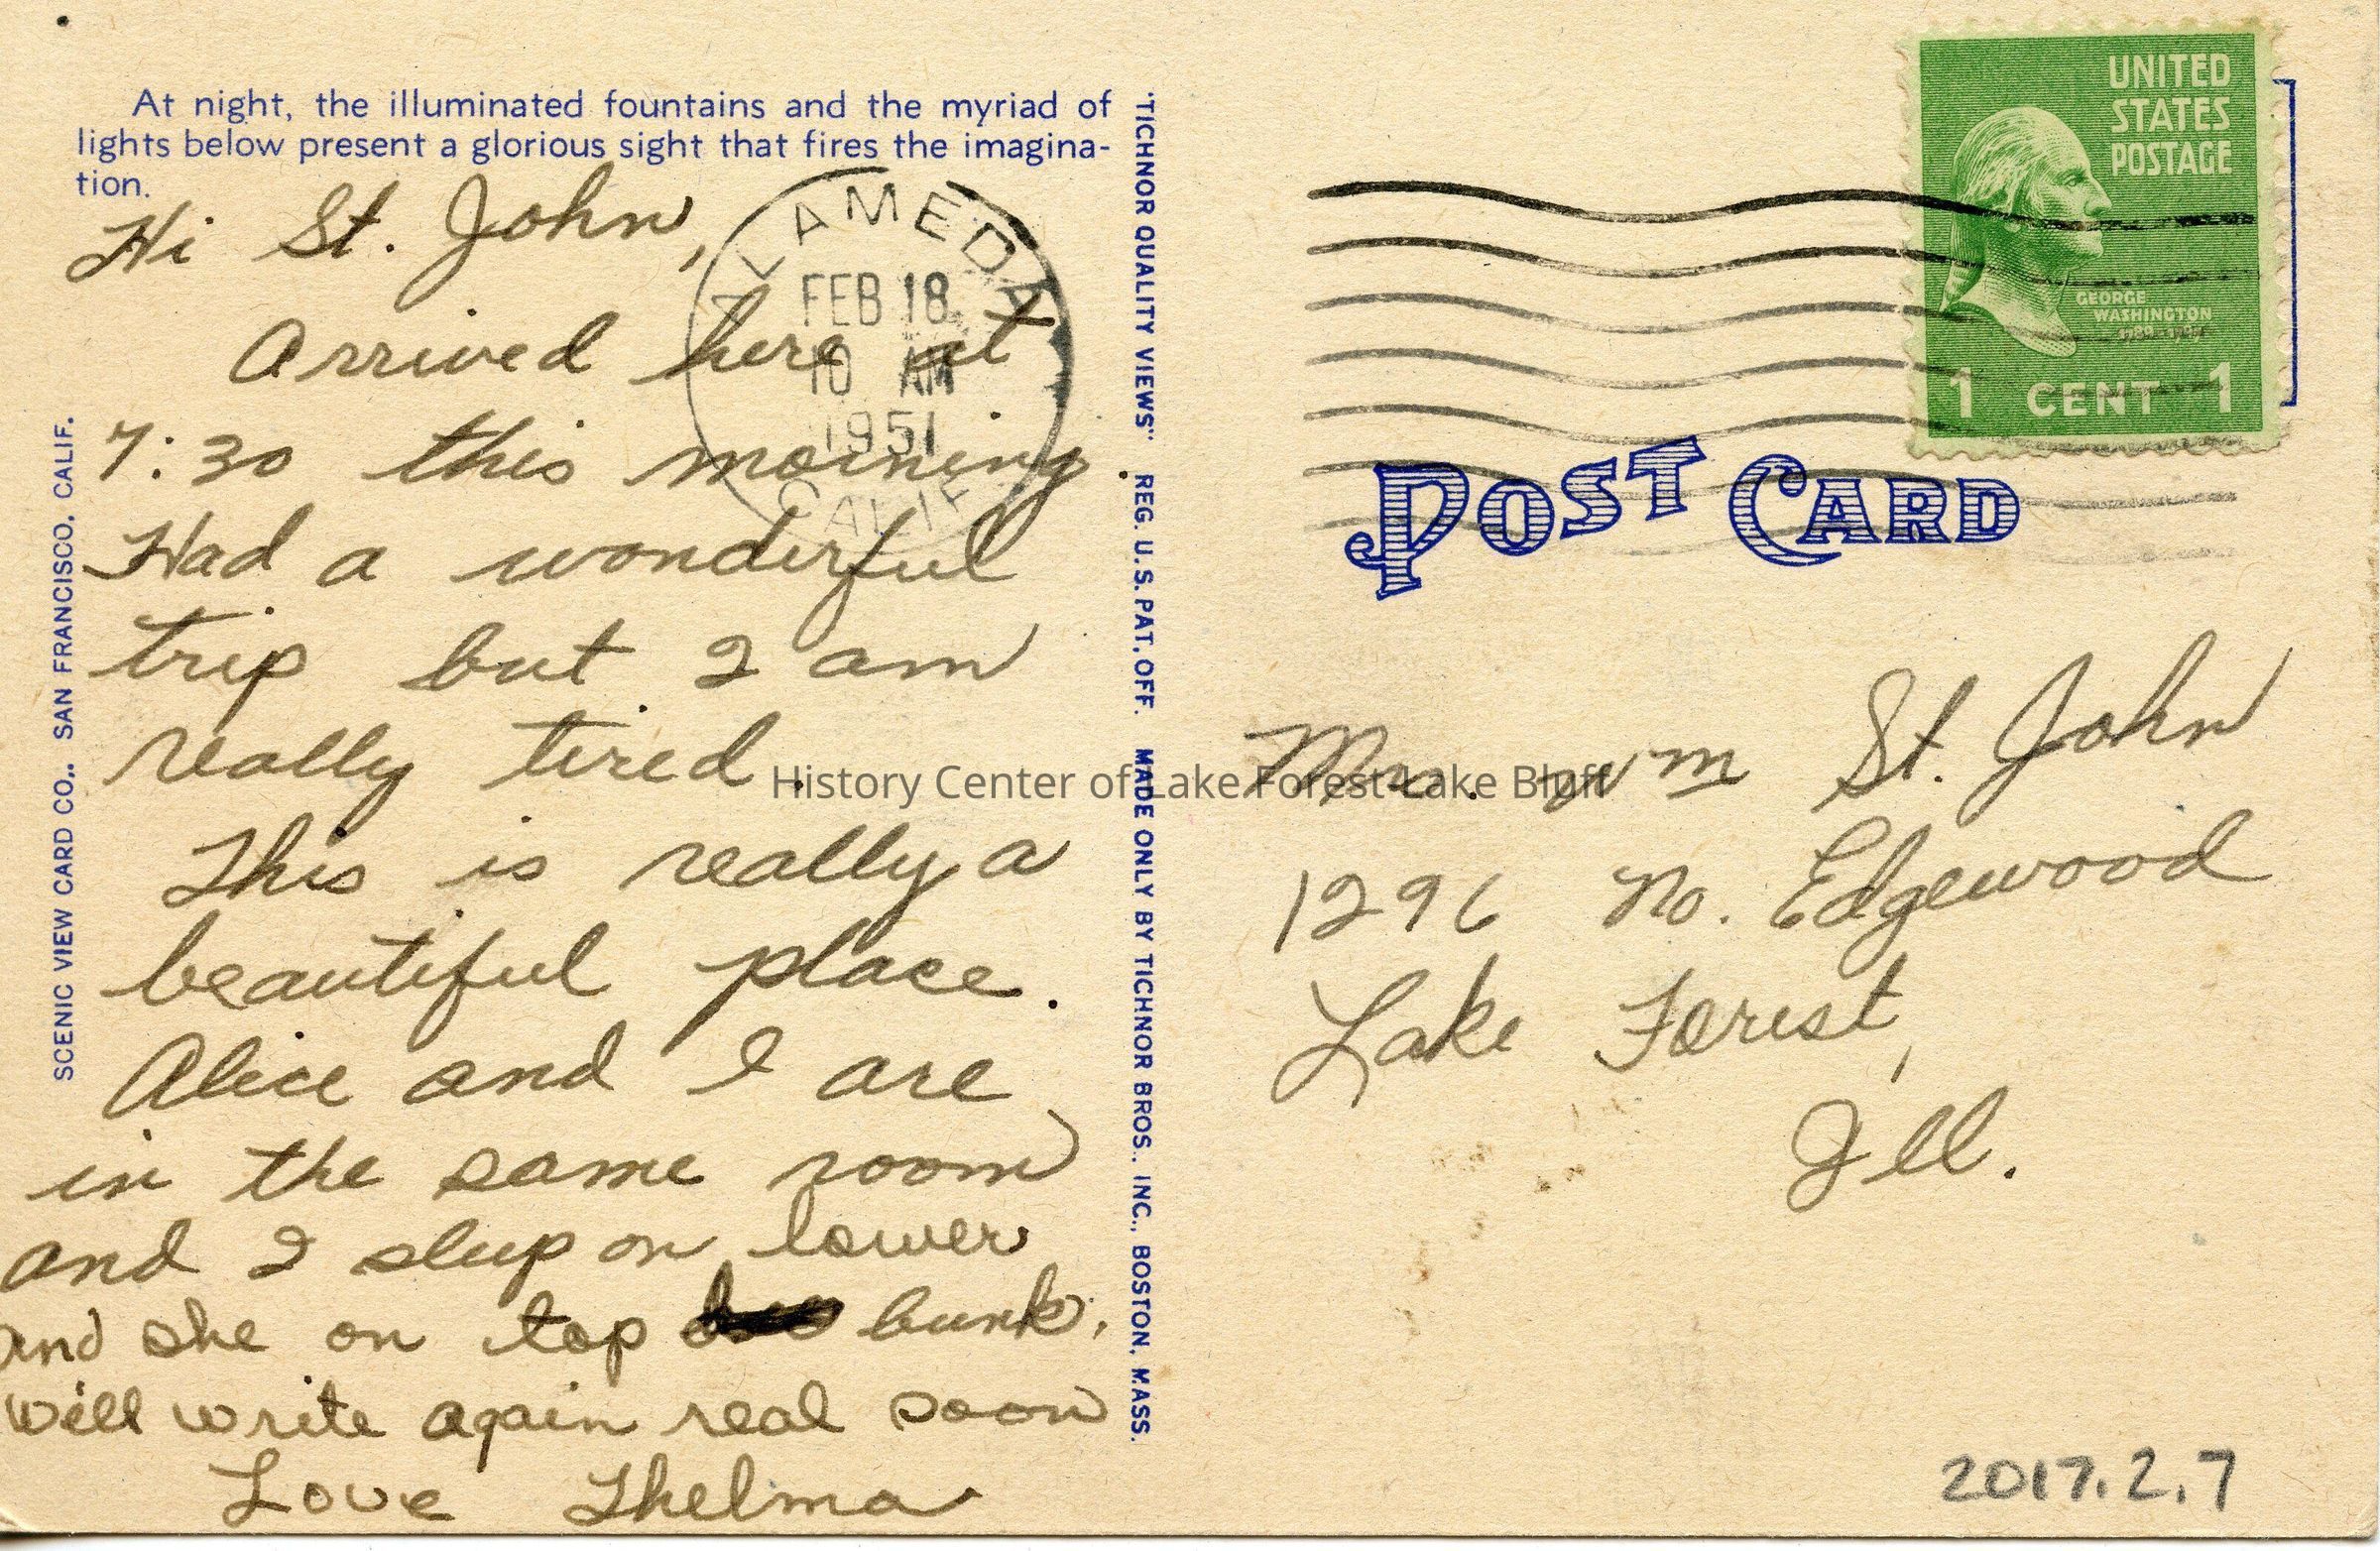 At night, the illuminated fountains and the myriad of
lights below present a glorious sight that fires the imagina-
tion.
Hi St. John,
Arrived here at
7:30 this morning.
Had a wonderful
trip but I am
really tired.
This is really a
beautiful place.
Alice and I are
in the same room
and I sleep on lower
and she on top bunk.
Will write again real soon
Love Thelma
SCENIC VIEW CARD CO., SAN FRANCISCO, CALIF.
"TICHNOR QUALITY VIEWS" REG. U.S. PAT. OFF. MADE ONLY BY TICHNOR BROS., INC., BOSTON, MASS.
ALAMEDA
FEB 18
10 AM
1951
CALIF
UNITED
STATES
POSTAGE
GEORGE
WASHINGTON
1 CENT 1
POST CARD
Mrs. Wm St. John
1296 No. Edgewood
Lake Forest,
Ill.
History Center of Lake Forest-Lake Bluff
2017.2.7